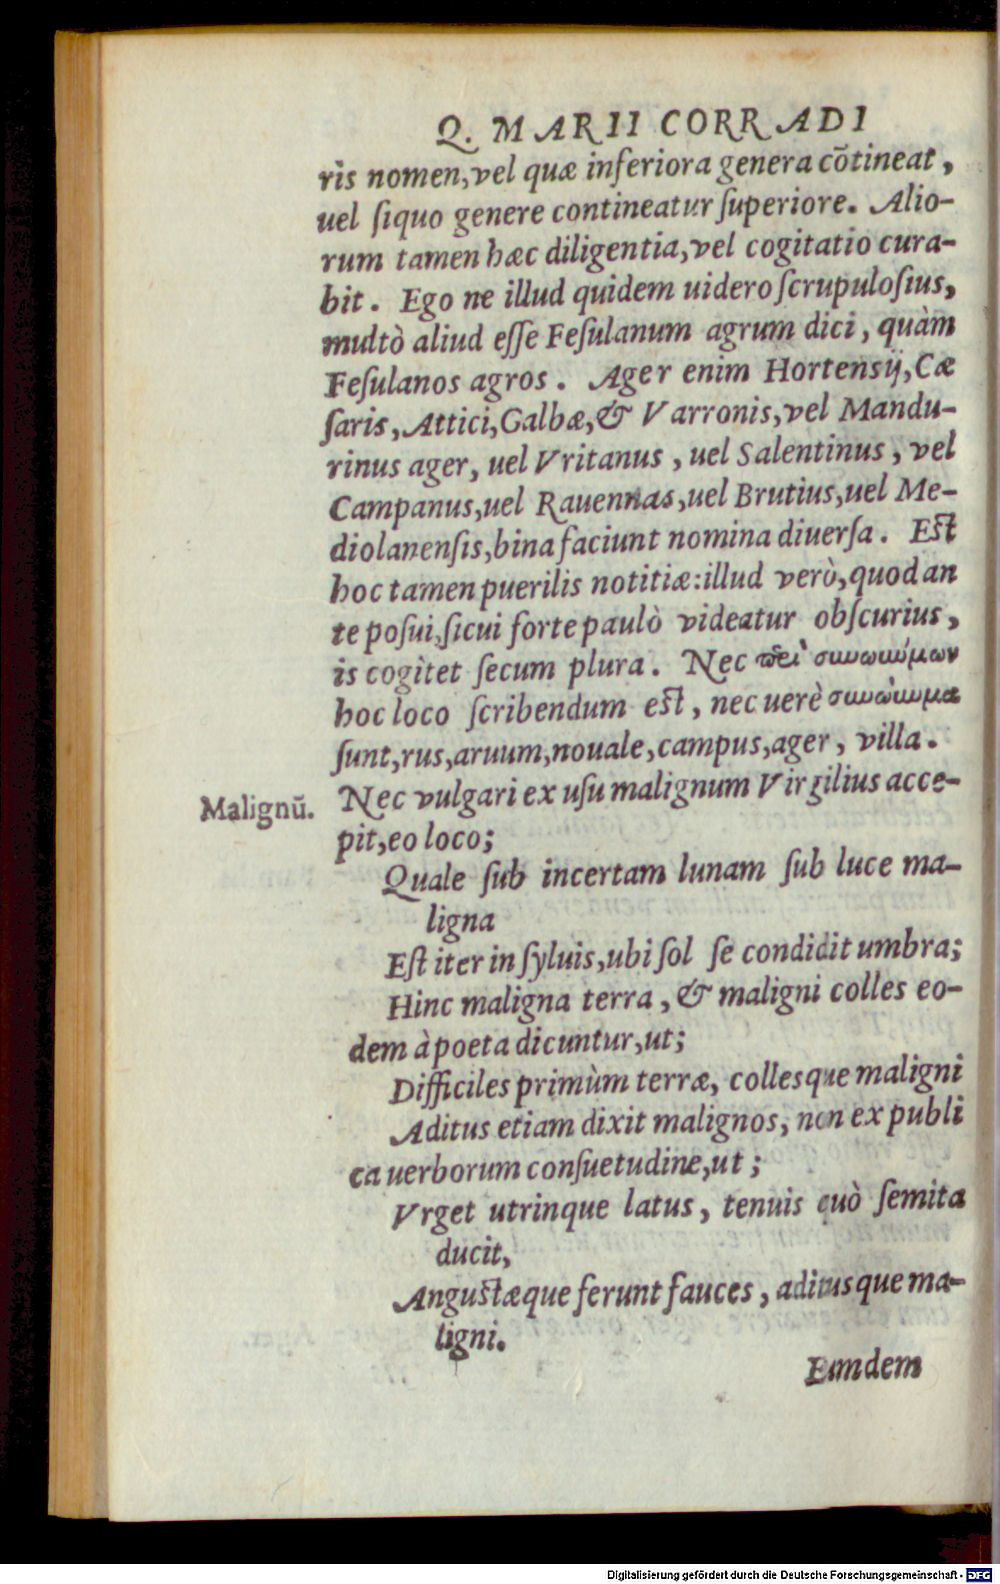 Q. MARII CORRADI
ris nomen, vel quæ inferiora genera cōtineat,
uel ſiquo genere contineatur ſuperiore. Alio-
rum tamen hæc diligentia, vel cogitatio cura-
bit. Ego ne illud quidem uidero ſcrupuloſius,
multò aliud eſſe Feſulanum agrum dici, quàm
Feſulanos agros. Ager enim Hortensij, Cæ
ſaris, Attici, Galbæ, & Varronis, vel Mandu-
rinus ager, uel Vritanus, uel Salentinus, vel
Campanus, uel Rauennas, uel Brutius, uel Me-
diolanenſis, bina faciunt nomina diuerſa. Eſt
hoc tamen puerilis notitiæ: illud verò, quod an
te poſui, ſicui forte paulò videatur obſcurius,
is cogitet ſecum plura. Nec περὶ συνωνύμων
hoc loco ſcribendum eſt, nec uerè συνώνυμα
ſunt, rus, aruum, nouale, campus, ager, villa.
Malignū. Nec vulgari ex uſu malignum Virgilius acce-
pit, eo loco;
Quale ſub incertam lunam ſub luce ma-
ligna
Eſt iter in ſyluis, ubi ſol ſe condidit umbra;
Hinc maligna terra, & maligni colles eo-
dem à poeta dicuntur, ut;
Difficiles primùm terræ, collesque maligni
Aditus etiam dixit malignos, non ex publi
ca uerborum conſuetudine, ut;
Vrget utrinque latus, tenuis quò ſemita
ducit,
Anguſtæque ferunt fauces, aditusque ma-
ligni.
Eumdem
Digitalisierung gefördert durch die Deutsche Forschungsgemeinschaft - DFG